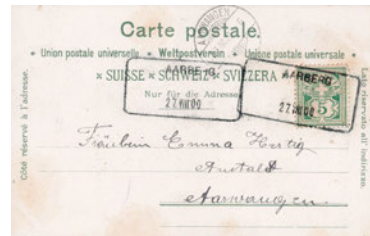 Carte postale.
* Union postale universelle * Weltpostverein * Unione postale universale *
× SUISSE × SCHWEIZ × SVIZZERA ×
Nur für die Adresse
AARBERG
27
AARBERG
27
5
Côté réservé à l'adresse.
Lato riservato all' indirizzo.
Fräulein Emma Hertig
Anstalt
Aarwangen.